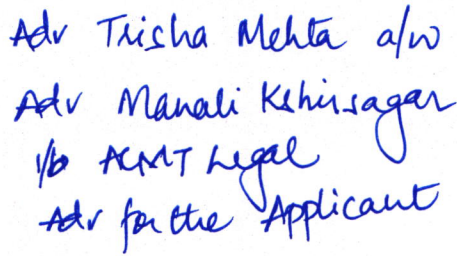 Adv Trisha Mehta a/w
Adv Manali Kshirsagar
i/b ACMT Legal
Adv for the Applicant